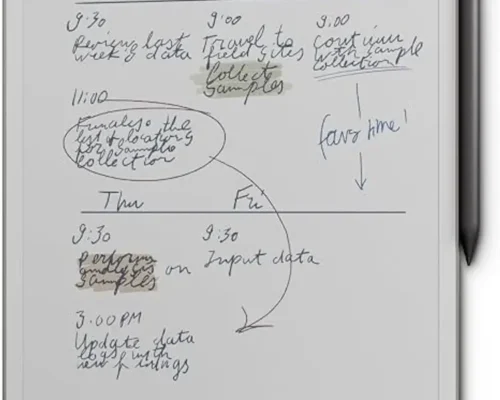 9:30
Review last
week's data
9:00
Travel to
field sites
Collect
Samples
9.00
Continue
with sample
collection
11:00
Finalise the
list of locations
for sample
collection
favs time!
Thu
Fri
9:30
Perform
analysis on
samples
3.00PM
Update data
logs with
new findings
9:30
Input data